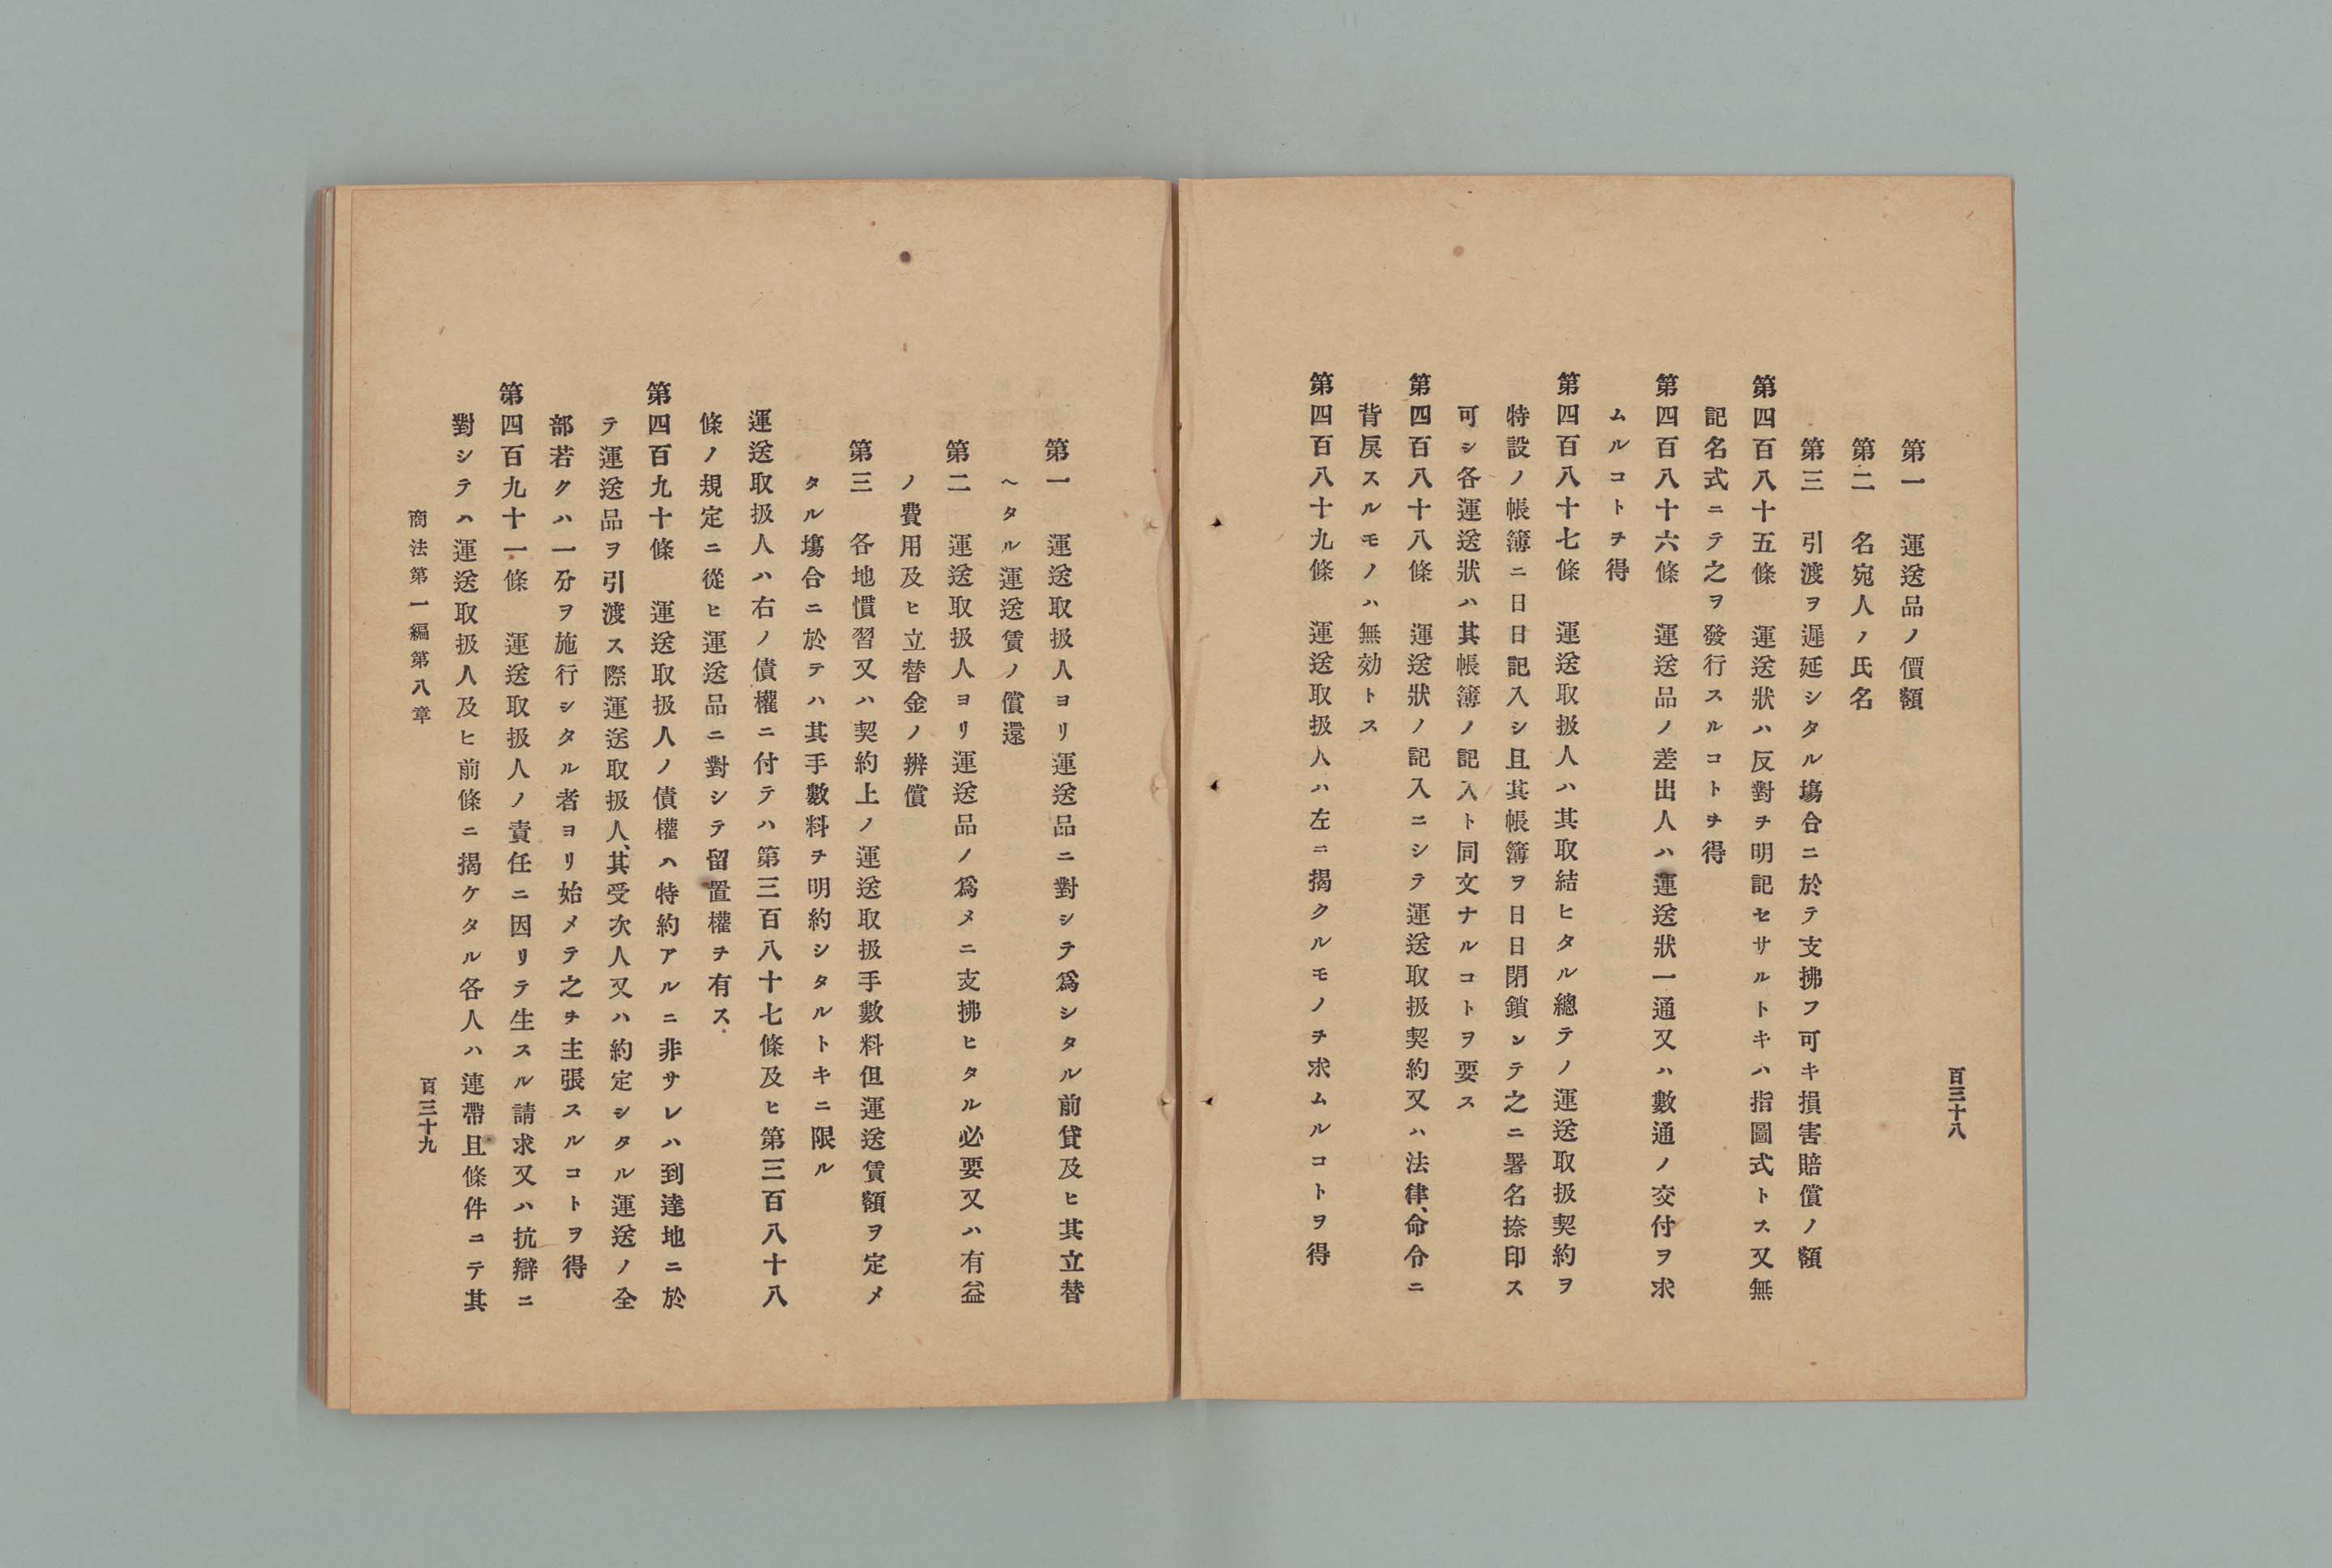 百三十八
第一　運送品ノ價額
第二　名宛人ノ氏名
第三　引渡ヲ遲延シタル塲合ニ於テ支拂フ可キ損害賠償ノ額
第四百八十五條　運送狀ハ反對ヲ明記セサルトキハ指圖式トス又無
記名式ニテ之ヲ發行スルコトヲ得
第四百八十六條　運送品ノ差出人ハ運送狀一通又ハ數通ノ交付ヲ求
ムルコトヲ得
第四百八十七條　運送取扱人ハ其取結ヒタル總テノ運送取扱契約ヲ
特設ノ帳簿ニ日日記入シ且其帳簿ヲ日日閉鎖シテ之ニ署名捺印ス
可シ各運送狀ハ其帳簿ノ記入ト同文ナルコトヲ要ス
第四百八十八條　運送狀ノ記入ニシテ運送取扱契約又ハ法律、命令ニ
背戻スルモノハ無効トス
第四百八十九條　運送取扱人ハ左ニ揭クルモノヲ求ムルコトヲ得
第一　運送取扱人ヨリ運送品ニ對シテ爲シタル前貸及ヒ其立替
ヘタル運送賃ノ償還
第二　運送取扱人ヨリ運送品ノ爲メニ支拂ヒタル必要又ハ有益
ノ費用及ヒ立替金ノ辨償
第三　各地慣習又ハ契約上ノ運送取扱手數料但運送賃額ヲ定メ
タル塲合ニ於テハ其手數料ヲ明約シタルトキニ限ル
運送取扱人ハ右ノ債權ニ付テハ第三百八十七條及ヒ第三百八十八
條ノ規定ニ從ヒ運送品ニ對シテ留置權ヲ有ス
第四百九十條　運送取扱人ノ債權ハ特約アルニ非サレハ到達地ニ於
テ運送品ヲ引渡ス際運送取扱人、其受次人又ハ約定シタル運送ノ全
部若クハ一分ヲ施行シタル者ヨリ始メテ之ヲ主張スルコトヲ得
第四百九十一條　運送取扱人ノ責任ニ因リテ生スル請求又ハ抗辯ニ
對シテハ運送取扱人及ヒ前條ニ揭ケタル各人ハ連帶且條件ニテ其
商法第一編第八章　百三十九